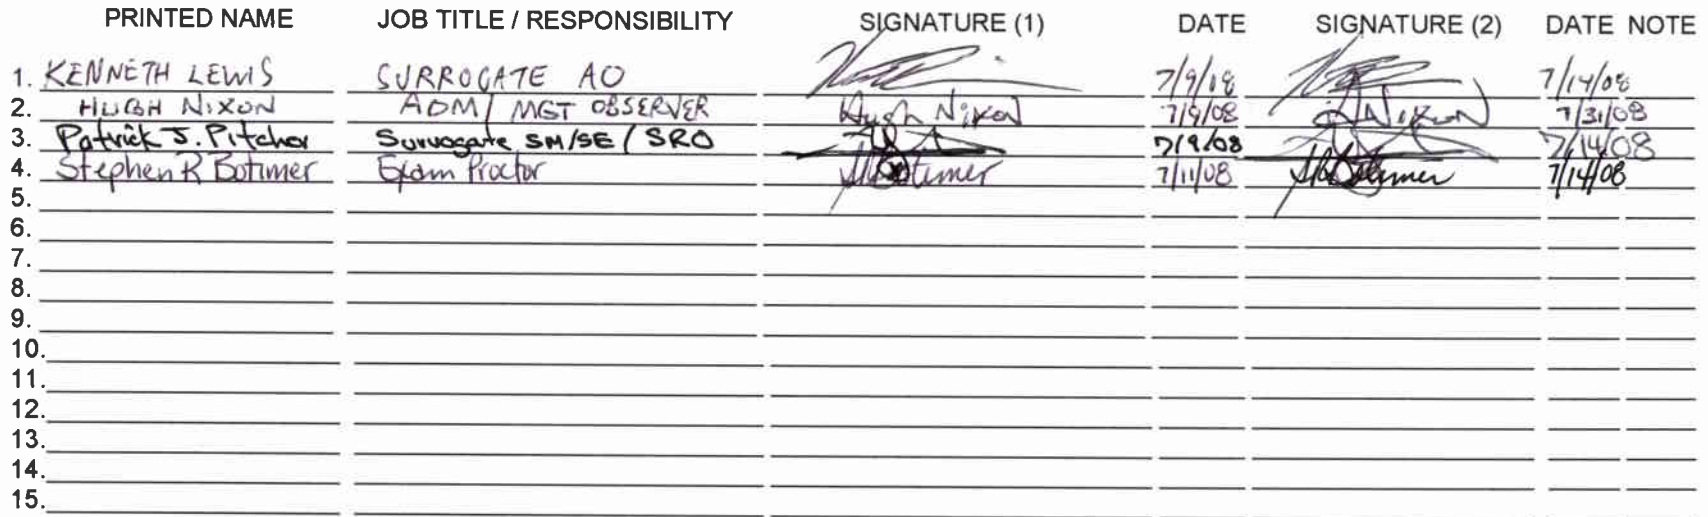 PRINTED NAME JOB TITLE / RESPONSIBILITY SIGNATURE (1) DATE SIGNATURE (2) DATE NOTE
1. KENNETH LEWIS SURROGATE AO 7/9/08 7/14/08
2. HUGH NIXON ADM / MGT OBSERVER Hugh Nixon 7/9/08 Nixon 7/31/08
3. Patrick J. Pitcher Surrogate SM/SE / SRO 7/9/08 7/14/08
4. Stephen R Botimer Exam Proctor Botimer 7/11/08 Botimer 7/14/08
5.
6.
7.
8.
9.
10.
11.
12.
13.
14.
15.